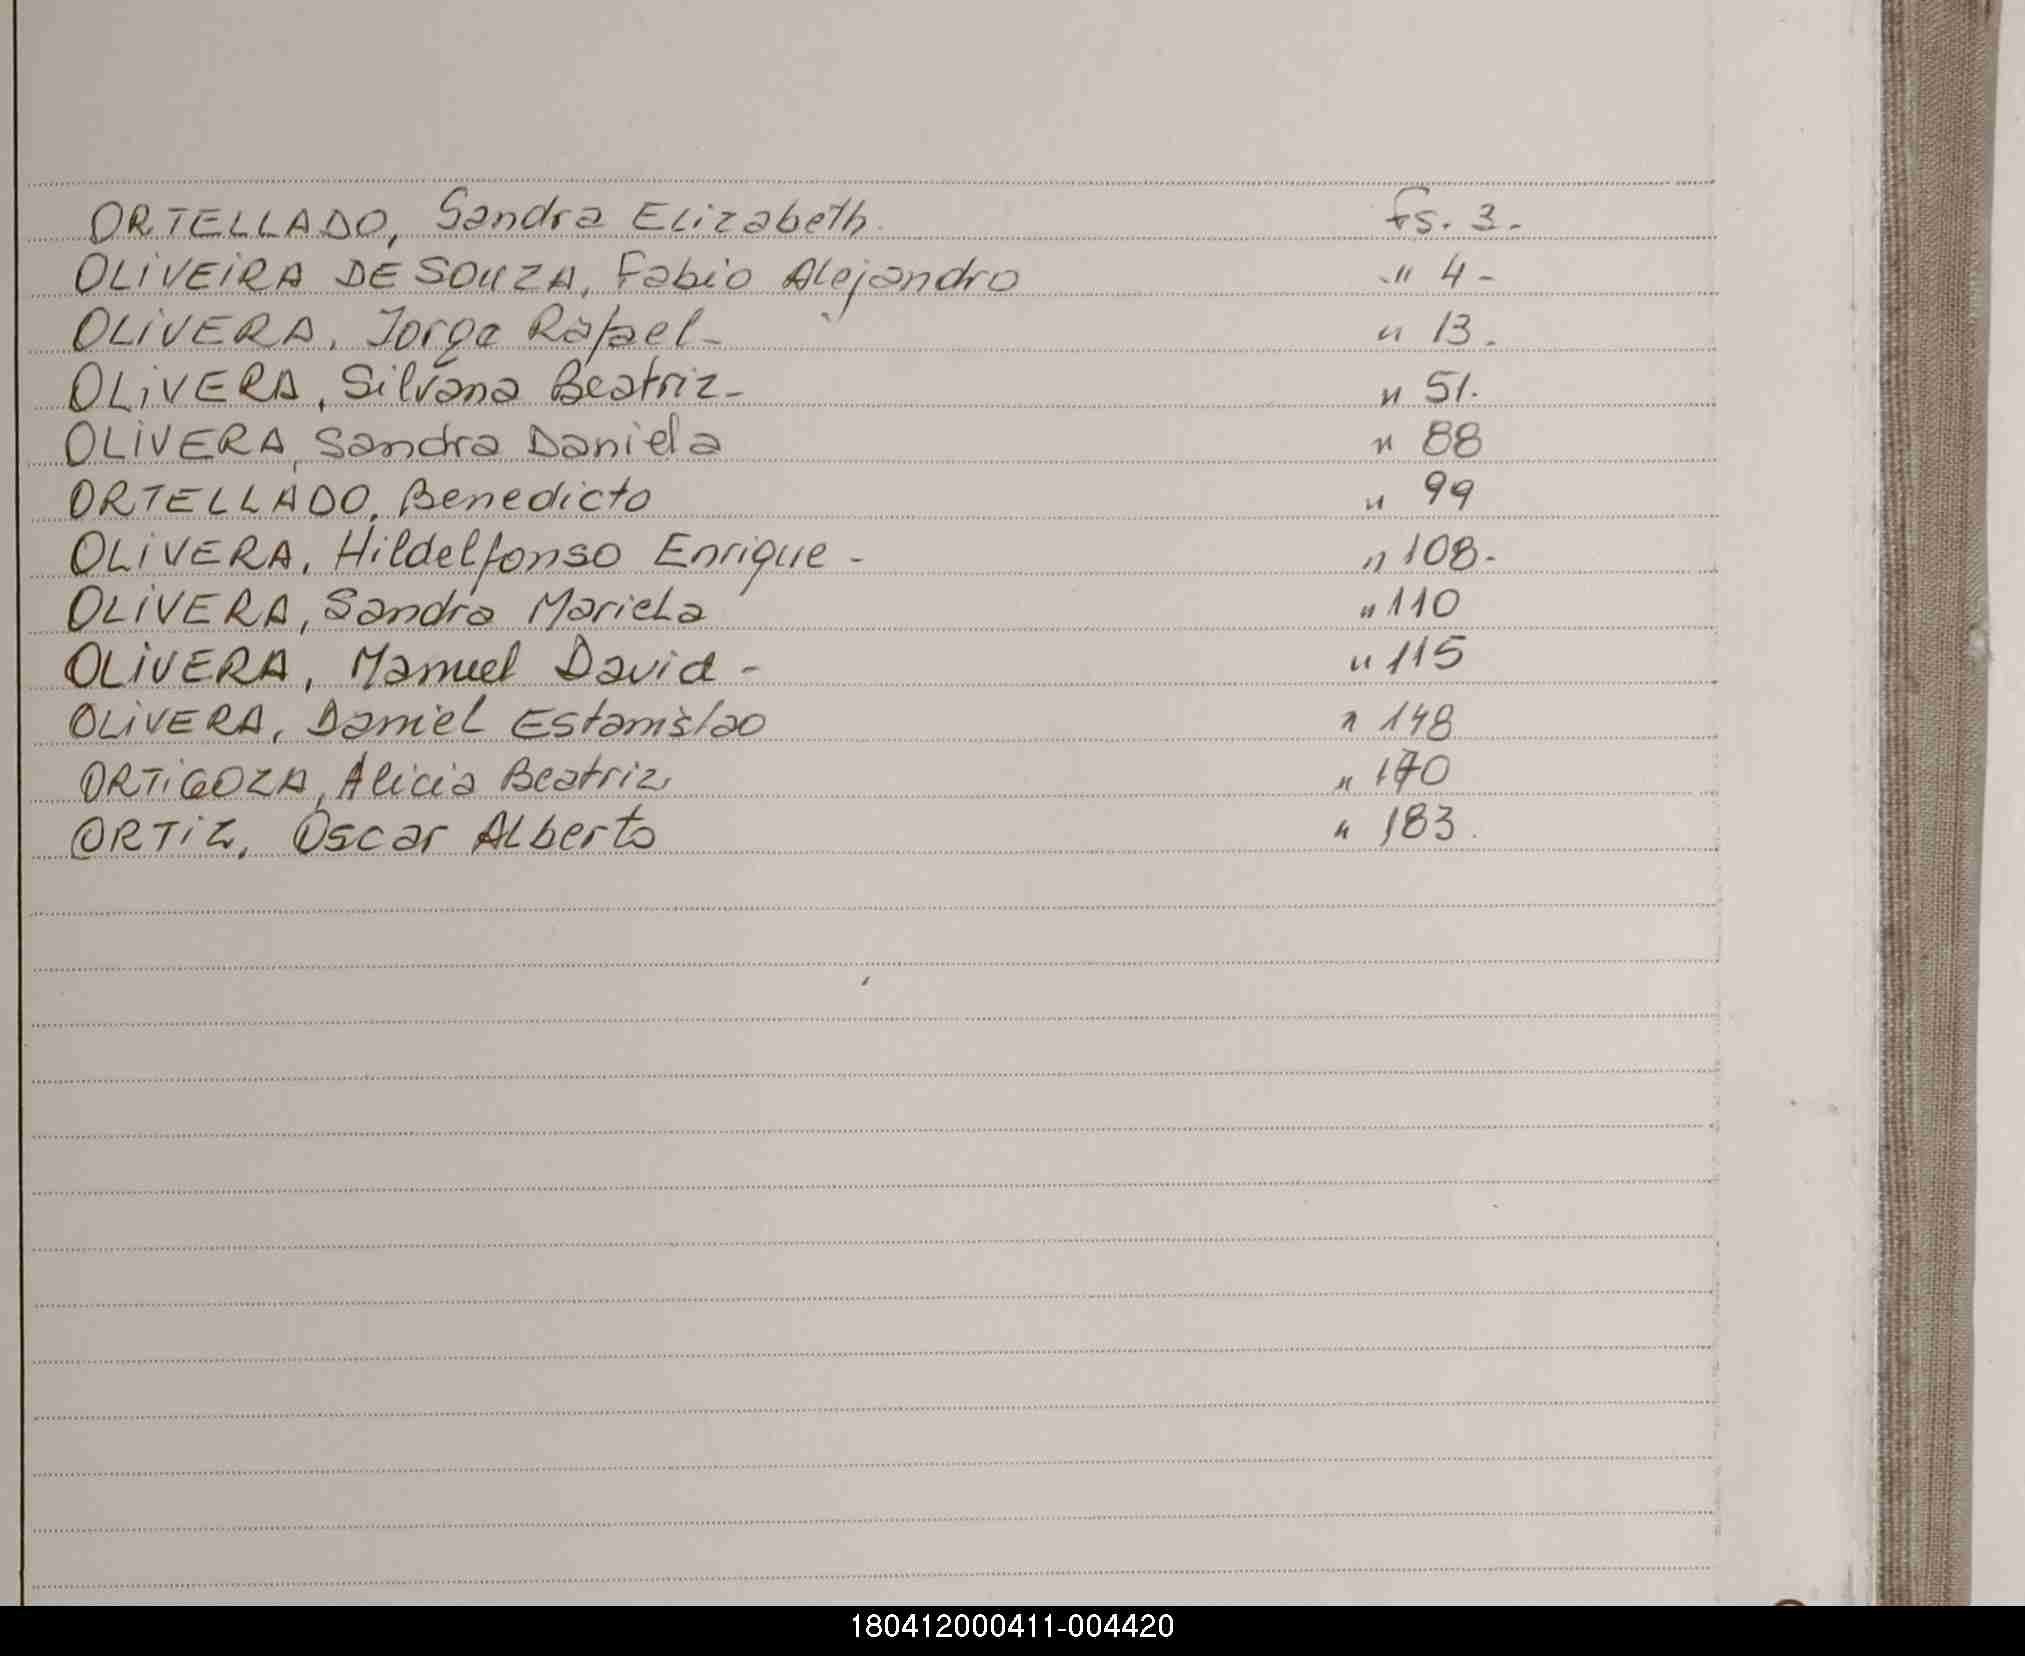 ORTELLADO, Sandra Elizabeth. Fs. 3.-
OLIVEIRA DE SOUZA, Fabio Alejandro " 4-
OLIVERA, Jorge Rafael- " 13.
OLIVERA, Silvana Beatriz- " 51.
OLIVERA, Sandra Daniela " 88
ORTELLADO, Benedicto " 99
OLIVERA, Hildelfonso Enrique - " 108.
OLIVERA, Sandra Mariela " 110
OLIVERA, Manuel David - " 115
OLIVERA, Daniel Estanislao " 148
ORTIGOZA, Alicia Beatriz " 170
ORTIZ, Oscar Alberto " 183.
180412000411-004420